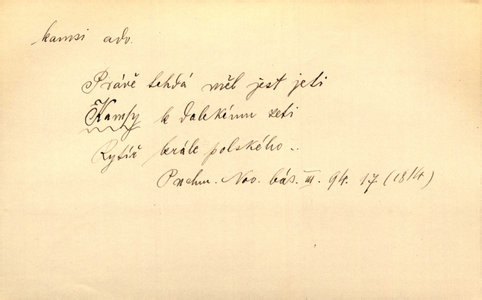 kamsi adv.
Právě tehdá měl jest jeti
Kamsy k dalekému zeti
Rytíř krále polského..
Puchm. Nov. bás. III. 94. 17 (1814)